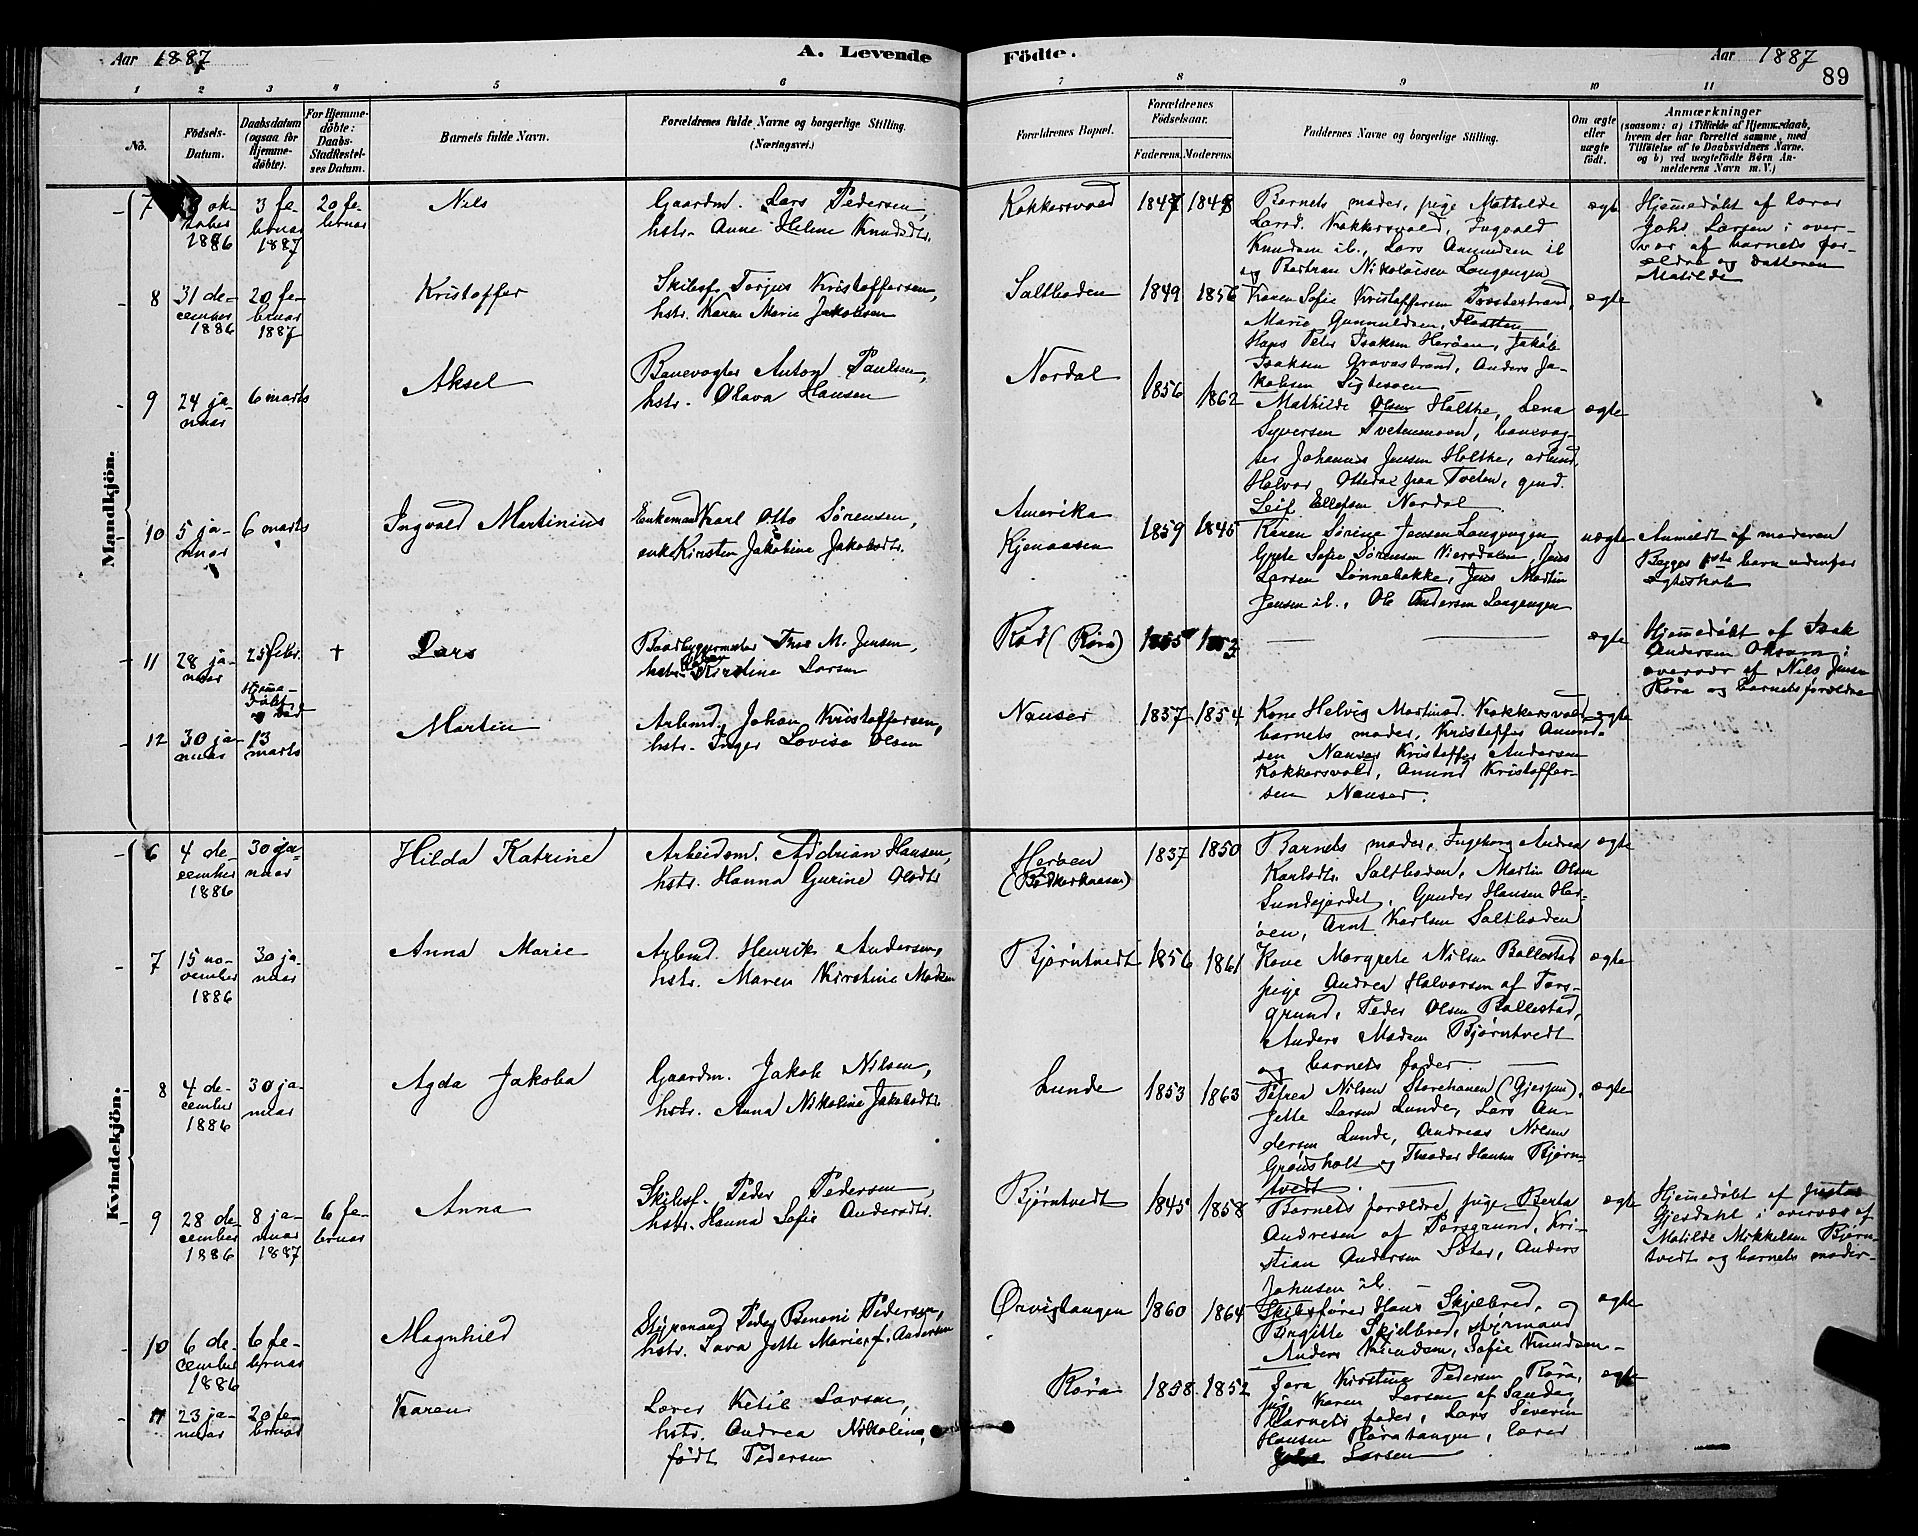 Aar 1887
A. Levende
Födte.
Aar 1887
89
1 2 3 4 5 6 7 8 9 10 11
No.
Födsels-
Datum.
Daabsdatum
(ogsaa for
Hjemme-
döbte).
For Hjemme-
döbte:
Daabs-
Stadfæstel-
ses Datum.
Barnets fulde Navn.
Forældrenes fulde Navne og borgerlige Stilling.
(Næringsvei.)
Forældrenes Bopæl.
Forældrenes
Födselsaar.
Faderens. Moderens.
Faddernes Navne og borgerlige Stilling.
Om ægte
eller
uægte
födt.
Anmærkninger
(saasom: a) i Tilfælde af Hjemmedaab,
hvem der har forrettet samme, med
Tilföielse af to Daabsvidners Navne.
og b) ved uægtefödte Börn An-
melderens Navn m. V.)
Mandkjön.
7
ok-
tober
1886
3 fe-
bruar
1887
20 fe-
bruar
Nils
Gaardm. Lars Pedersen,
hstr. Anne Helene Knudsdtr.
Kokkersvold
1847 1848
Barnets moder, pige Mathilde
Larsd. Kokkersvold, Ingvald
Knudsen ib., Lars Amundsen ib
og Bertran Nikolaisen Langangen
ægte
Hjemedøbt af lærer
Johs. Larsen i over-
vær af barnets for-
ældre og datteren
Matilde
8
31 de-
cember
1886
20 fe-
bruar
1887
Kristoffer
Skibsf. Torjus Kristoffersen,
hstr. Karen Marie Jakobsen
Saltboden
1849 1856
Karen Sofie Kristoffersen Trosterstrand,
Marie Gunnuldsen, Flaatten,
Hans Peter Isaksen Herøen, Jakob
Isaksen Gravastrand, Anders Ja-
kobsen Sigtesøen
ægte
9
24 ja-
nuar
6 marts
Aksel
Banevogter Anton Paulsen,
hstr. Olava Hansen
Nordal
1856 1862
Mathilde Olsen Holtke, Lena
Syversen Tvetenmoen, banevog-
ter Johannes Jensen Holtke, arbmd.
Halvor Ottedal paa Tveten, gmd.
Leif Ellefsen Nordal
ægte
10
5 ja-
nuar
6 marts
Ingvald Martinius
Enkemand Karl Otto Sørensen,
enke Kirsten Jakobine Jakobsdtr.
Amerika
Kjenaasen
1859 1845
Karen Sørine Jensen Langangen
Grete Sofie Sørensen Viersdalen, Jens
Larsen Sønnebakke, Jens Martin
Jensen ib., Ole Andersen Langangen
uægte
Anmeldt af moderen
Begges 1ste barn udenfor
ægteskab
11
28 ja-
nuar
25 febr.
Hjeme-
døbt
og død
†
Lars
Baadbyggermester Thor M. Jensen,
hstr. Kirstine Larsen
Rød (Røra)
1855 1853
ægte
Hjemedøbt af Isak
Andersen Oksum i
overvær af Nils Jensen
Røra og barnets forældre
12
30 ja-
nuar
13
marts
Martin
Arbmd. Johan Kristoffersen,
hstr. Inger Lovise Olsen
Nauser
1857 1854
Kone Helvig Martinsd. Kokkersvold
barnets moder, Kristoffer Amund-
sen Nauser Kristoffer Andersen
Kokkersvold, Amund Kristoffer-
sen Nauser.
ægte
Kvindekjön.
6
4 de-
cember
1886
30 ja-
nuar
Hilda Katrine
Arbeidsm. Addrian Hansen,
hstr. Hanna Gurine Olsdtr.
Herøen
1837 1850
Barnets moder, Ingeborg Andrea
Karlsdtr. Saltboden, Martin Olsen
Sundsjordet, Gunder Hansen Her-
øen, Arnt Karlsen Saltboden
ægte
7
15 no-
vember
1886
30 ja-
nuar
Anna Marie
Arbmd. Henrik Andersen,
hstr. Maren Kirstine Madsen
Bjørntvedt
1856 1861
Kone Margrete Nilsen Bollestad
pige Andrea Halvorsen af Pors-
grund, Peder Olsen Bollestad,
Anders Madsen Bjørntvedt
og barnets fader.
ægte
8
4 de-
cember
1886
30 ja-
nuar
Agda Jakoba
Gaardm. Jakob Nilsen,
hstr. Anna Nikoline Jakobsdtr.
Lunde
1853 1863
Petrea Nilsen Storehanen (Gjerpen),
Jette Larsen Lunde, Lars An-
dersen Lunde, Andreas Nilsen
Grønsholt og Theodor Hansen Bjørn-
tvedt
ægte
9
28 de-
cember
1886
8 ja-
nuar
1887
6 fe-
bruar
Anna
Skibsf. Peder Pedersen,
hstr. Hanna Sofie Andersdtr.
Bjørntvedt
1845 1858
Barnets forældre, pige Berta
Andresen af Porsgrund, Kri-
stian Andersen Søter, Anders
Johnsen ib.
ægte
Hjemedøbt af Justus
Gjesdahl i overvær af
Matilde Mikkelsen Bjørn-
tvedt og barnets moder.
10
6 de-
cember
1886
6 fe-
bruar
Magnhild
Styrmand Peder Benoni Pedersen,
hstr. Lava Jette Marie f. Andersen
Ørvigtangen
1860 1864
Skibsfører Hans Skjelbred,
Birgitte Skjelbred, styrmand
Anders Knudsen, Sofie Knudsen
ægte
11
23 ja-
nuar
20 fe-
bruar
Karen
Lærer Ketil Larsen,
hstr. Andrea Nikoline,
født Pedersen
Røra
1858 1852
Sara Kirstine Pedersen Røra,
pig. Karen Larsen af Sande,
barnets fader, Lars Severin
Hansen Røratangen, lærer
Larsen
ægte